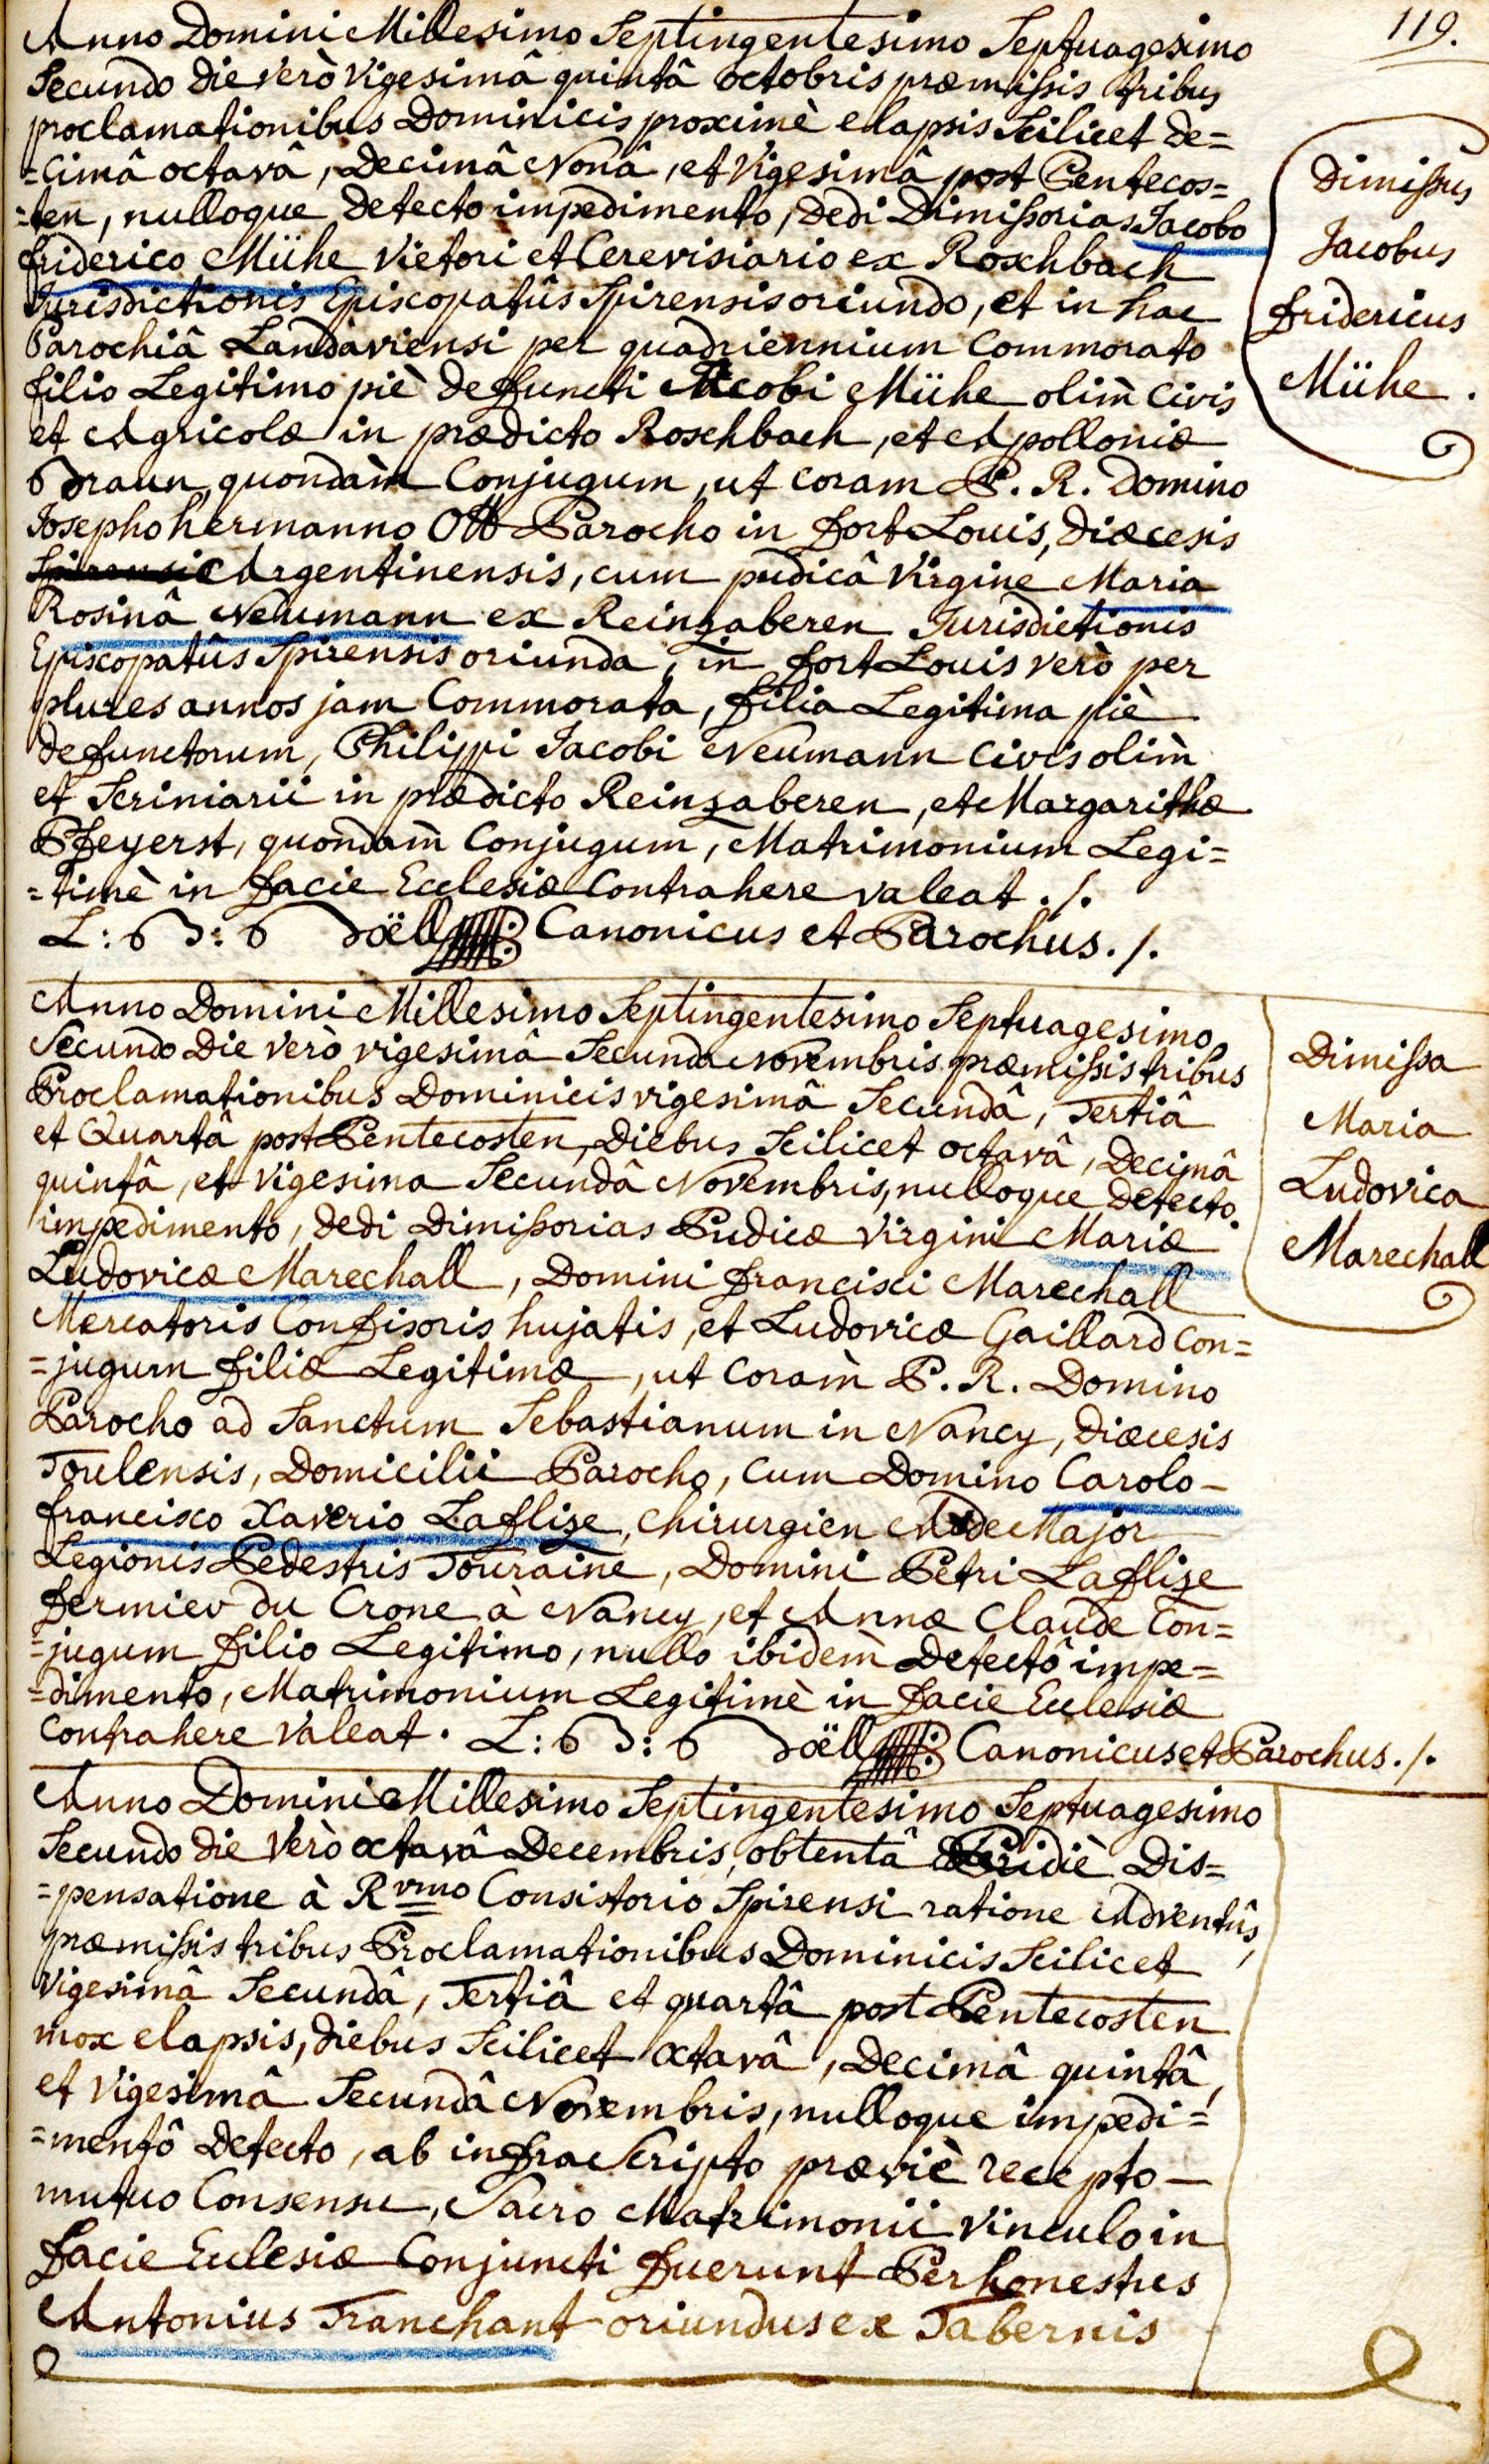 119.
Anno Domini Millesimo Septingentesimo Septuagesimo
Secundo die verò vigesimâ quintâ octobris præmissis tribus
proclamationibus Dominicis proximè elapsis scilicet de=
=cimâ octavâ, Decimâ Nonâ, et Vigesimâ post Pentecos=
=ten, nulloque detecto impedimento, dedi Dimissorias Jacobo
friderico Mühe Vietori et Cerevisiario ex Roschbach
Jurisdictionis Episcopatûs Spirensis oriundo, et in hac
Parochiâ Landaviensi per quadriennium Commorato
filio Legitimo piè defuncti Jacobi Mühe olim Civis
et Agricolæ in prædicto Roschbach, et Apolloniæ
Braun quondàm Conjugum, ut coram P. R. Domino
Josepho hermanno Ott Parocho in fort Louis, Diæcesis
Argentinensis, cum pudicâ Virgine Maria
Rosinâ Neumann ex Reinzaberen Jurisdictionis
Episcopatûs Spirensis oriunda, in fort Louis verò per
plures annos jam Commorata, filia Legitima piè
defunctorum, Philippi Jacobi Neumann Civis olim
et Scriniarii in prædicto Reinzaberen, et Margarithæ
Pfeyerst, quondam Conjugum, Matrimonium Legi=
=timè in facie Ecclesiæ Contrahere valeat ./.
L: B: B Döell Canonicus et Parochus ./.
Dimissus
Jacobus
fridericus
Mühe.
Anno Domini Millesimo Septingentesimo Septuagesimo
Secundo Die verò vigesimâ Secunda Novembris præmissis tribus
Proclamationibus Dominicis vigesimâ Secundâ, Tertiâ
et Quartâ post Pentecosten, Diebus scilicet octavâ, Decimâ
quintâ, et vigesima Secundâ Novembris, nulloque Detecto
impedimento, dedi Dimissorias Pudicæ Virgini Mariæ
Ludovicæ Marechall, Domini francisci Marechall
Mercatoris Confisoris hujatis, et Ludovicæ Gaillard Con=
=jugum filiæ Legitimæ, ut Coràm P. R. Domino
Parocho ad Sanctum Sebastianum in Nancy, Diæcesis
Toulensis, Domicilii Parocho, cum Domino Carolo-
francisco Xaverio Laflize, chirurgien Aide Major
Legionis Pedestris Touraine, Domini Petri Laflize
fermier du Crone à Nancy, et Annæ Claude Con=
=jugum filio Legitimo, nullo ibidem Detectô impe=
=dimento, Matrimonium Legitimè in facie Ecclesiæ
Contrahere Valeat. L: B: B Döell Canonicus et Parochus ./.
Dimissa
Maria
Ludovica
Marechall
Anno Domini Millesimo Septingentesimo Septuagesimo
Secundo die Verò octavâ Decembris, obtentâ Pridiè Dis=
=pensatione à Rvmo Consistorio Spirensi ratione Adventûs,
præmissis tribus Proclamationibus Dominicis scilicet
Vigesimâ Secundâ, Tertiâ et quartâ post Pentecosten
mox elapsis, diebus Scilicet octavâ, Decimâ quintâ,
et Vigesimâ Secundâ Novembris, nulloque impedi=
=mentô Detecto, ab infra Scripto præviè recepto-
mutuo Consensu, Sacro Matrimonii vinculo in
facie Ecclesiæ Conjuncti fuerunt Perhonestus
Antonius Tranchant oriundus ex Tabernis